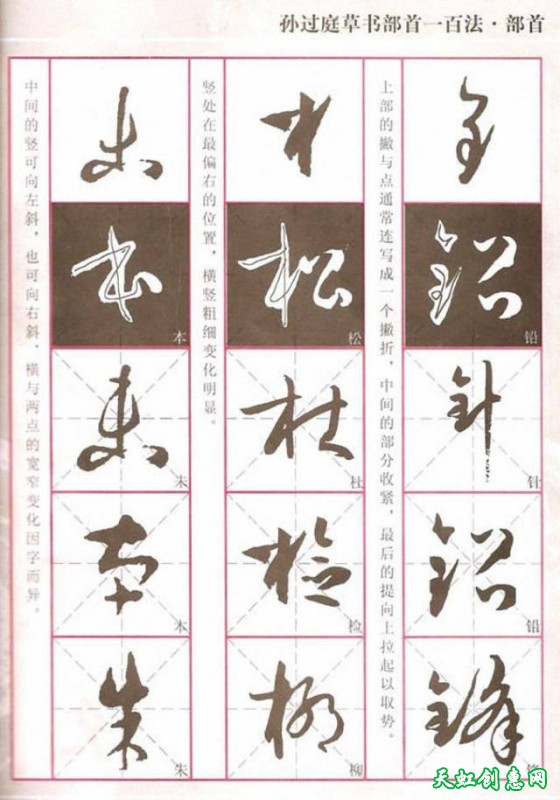 孙过庭草书部首一百法·部首
上部的撇与点通常连写成一个撇折，中间的部分收紧，最后的提向上拉起以取势。
铅
针
铅
锋
竖处在最偏右的位置，横竖粗细变化明显。
松
杜
检
柳
中间的竖可向左斜，也可向右斜，横与两点的宽窄变化因字而异。
本
未
本
朱
天虹创意网